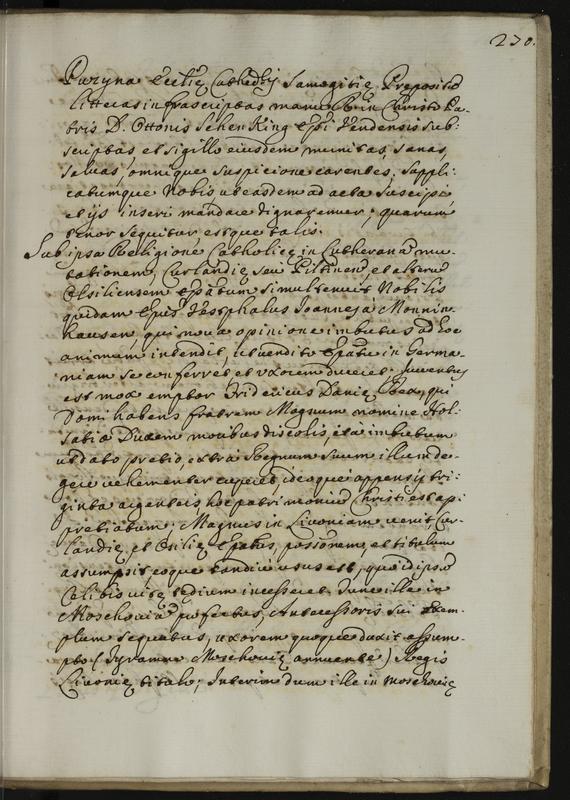 230.
Puzyna Eccliæ Cathedlis Samogitiæ Præpositū
litteras infrascriptas manu Rni in Christo Pa-
tris D. Ottonis Schenking Epi Vendensis sub-
scriptas et sigillo eiusdem munitas, sanas,
saluas, omnique suspicione carentes, suppli-
catumque Nobis ut easdem ad acta suscipi
et ijs inseri mandare dignaremur; quarum
tenor sequitur estque talis.
Sub ipsa Religionē Catholicæ in Lutheranā mu-
tationem, Curlandiæ seu Piltinen, et alterū
Osiliensem Epatum simul tenuit Nobilis
quidam Epus Westphalus Joannes à Monnin-
hausen, qui noua opinione imbutus ad hoc
animum intendit, ut vendito Epatu in Germa-
niam se conferret et vxorem duceret. Inventus
est mox emptor Fridericus Daniæ Rex, qui
Domi habens fratrem Magnum nomine Hol-
satiæ Ducem moribus discolis, ita imbutum
ut dato pretio, extra Regnum suum illum de-
gere vehementer cuperet, ideoque appensis tri-
ginta argenteis, hoc patrimoniū Christi est ap-
pretiatum; Magnus in Livoniam venit, Cur-
landiæ et Osiliæ Epatus, possionem, et titulum
assumpsit eoque tandiu usus est, quoad ipsū
Celibis vitæ tedium incesseret. Tunc ille in
Moschouiā profectus, Antecessoris sui exem-
plum sequutus, uxorem quoque duxit assum-
pto (Tyranno Moschouiæ annuente) Regis
Liuoniæ titulo; Interim dum ille in Moschouiæ